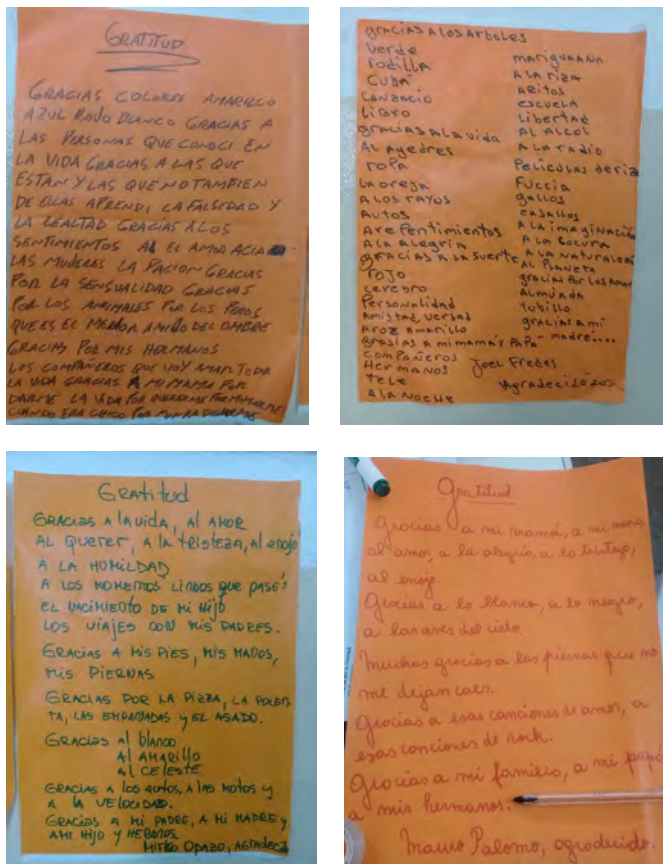 GRATITUD
GRACIAS COLORES AMARILLO
AZUL ROJO BLANCO GRACIAS A
LAS PERSONAS QUE CONOCI EN
LA VIDA GRACIAS A LAS QUE
ESTAN Y LAS QUE NO TAMBIEN
DE ELLAS APRENDI, LA FALSEDAD Y
LA LEALTAD GRACIAS A LOS
SENTIMIENTOS AL EL AMOR ACIA
LAS MUJERES LA PACION GRACIAS
POR LA SENSUALIDAD GRACIAS
POR LOS ANIMALES POR LOS
QUE ES EL AMIGO DEL OMBRE
GRACIAS POR MIS HERMANOS
LOS COMPAÑEROS QUE VOY TODA
LA VIDA GRACIAS A MI MAMA POR
DARME LA VIDA POR QUERERME POR MIMARME
CUANDO ERA CHICO POR
gracias A LOS Arboles
Verde
rodilla
CUBA
CANZACIO
LIBRO
gracias A La vida
AL Ayedres
ropa
La oreja
A LOS rayos
Autos
Arepentimientos
A La Alegria
gracias A La Suerte
rojo
cerebro
Personalidad
Amistad, verdad
Aroz Amarillo
grasias a mi mamá y PAPA - madre....
compañeros
Hermanos
tele
A La Noche
mariguaana
A La riza
Aritos
escuela
Libertad
AL ALcol
A La radio
Peliculas deriza
Fuccia
gallos
caballos
A La imaginación
A La Locura
A La Naturaleza
AL Planeta
gracias por Los
Almuada
tobillo
gracias a mi
Joel Fredes
Agradecido
Gratitud
GRACIAS A la vida, Al AMOR
AL QUERER, A la TRISTEZA, Al enojo
A LA HUMILDAD
A LOS MOMENTOS LINDOS QUE PASÉ
EL NACIMIENTO DE MI HIJO
LOS VIAJES CON MIS PADRES.
GRACIAS A MIS PIES, MIS MANOS,
MIS PIERNAS
GRACIAS POR LA PIZZA, LA POLEN
TA, LAS EMPANADAS Y EL ASADO.
GRACIAS Al blanco
Al AMARILLO
AL CELESTE
GRACIAS A los autos, A las MOTOS y
A LA VELOCIDAD.
GRACIAS A MI PADRE, A MI MADRE y
A MI HIJO y
Mirko Opazo,
Gratitud
Gracias a mi mamá, a mi novia,
al amor, a la alegría, a la tristeza,
al enojo.
Gracias a lo blanco, a lo negro,
a las aves del cielo.
Muchas gracias a las piernas que no
me dejan caer.
Gracias a esas canciones de amor, a
esas canciones de rock.
Gracias a mi familia, a mi papá
a mis hermanos.
Mauro Palomo, agradecido.